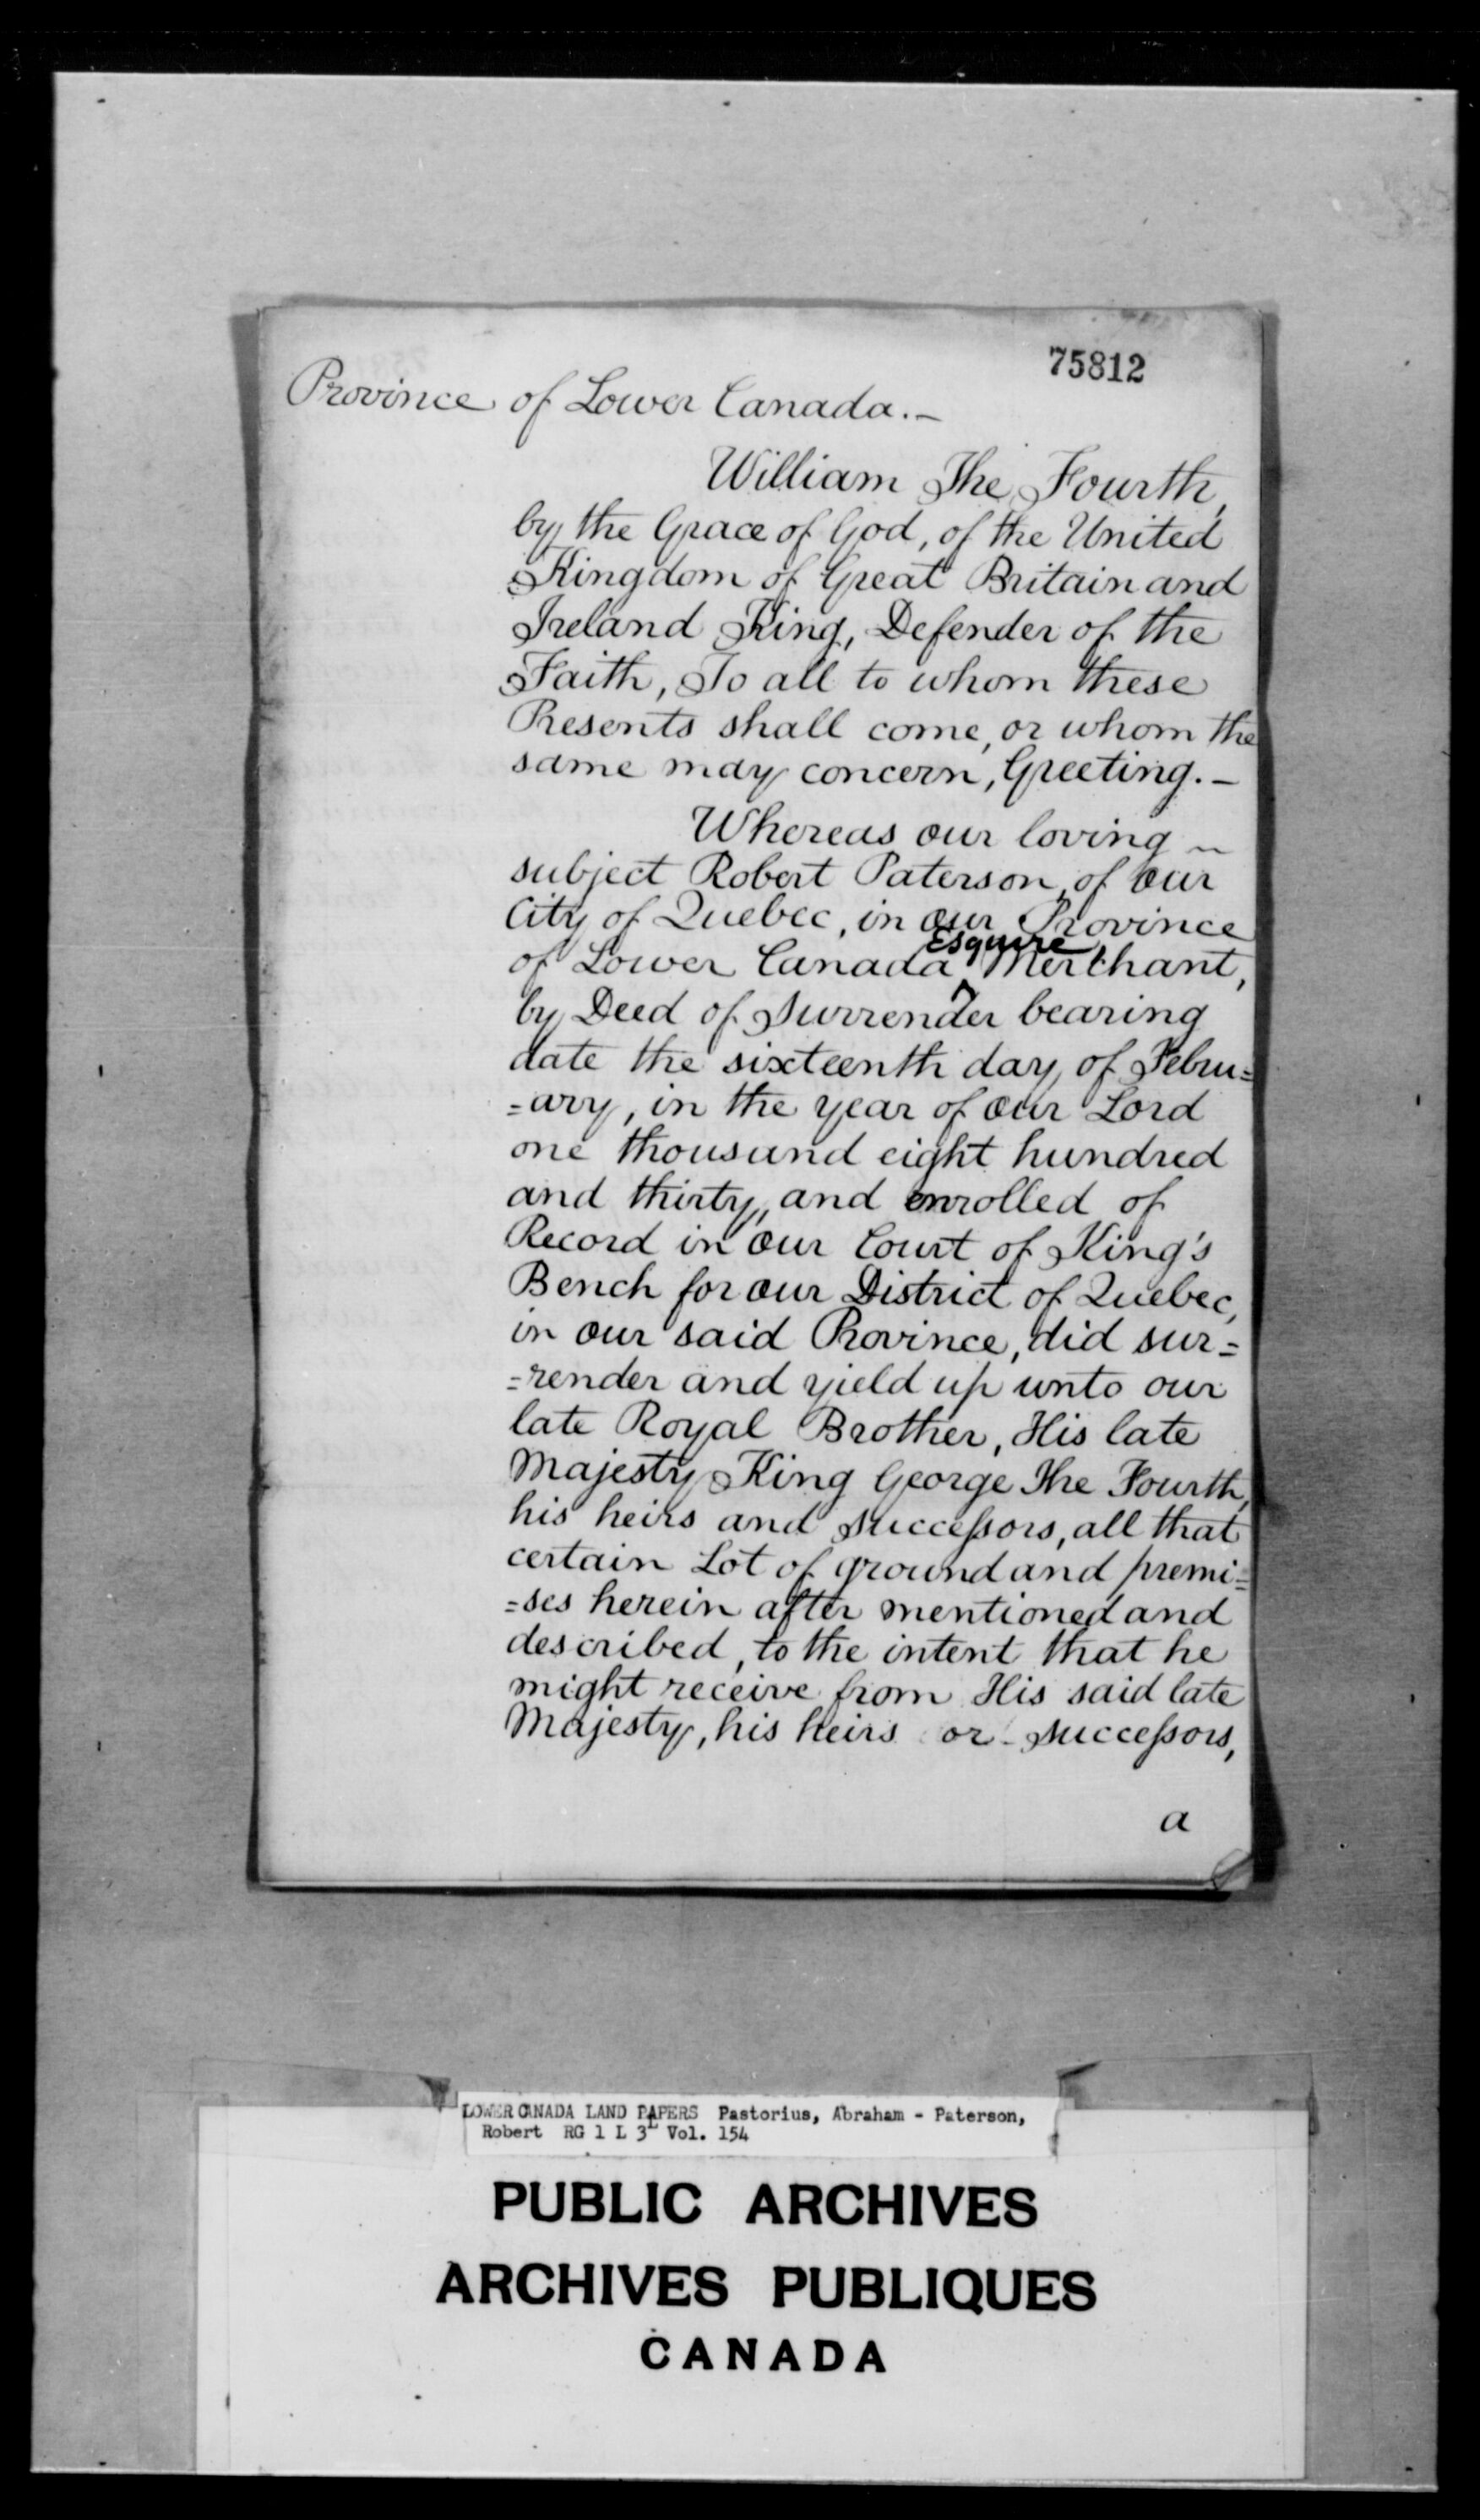 75812
Province of Lower Canada.-
William The Fourth,
by the Grace of God, of the United
Kingdom of Great Britain and
Ireland King, Defender of the
Faith, To all to whom these
Presents shall come, or whom the
same may concern, Greeting.-
Whereas our loving ~
subject Robert Paterson, of our
City of Quebec, in our Province
Esquire
of Lower Canada ^ Merchant,
by Deed of Surrender bearing
date the sixteenth day of Febru=
=ary, in the year of our Lord
one thousand eight hundred
and thirty, and enrolled of
Record in our Court of King's
Bench for our District of Quebec,
in our said Province, did sur=
=render and yield up unto our
late Royal Brother, His late
Majesty King George The Fourth,
his heirs and succeſsors, all that
certain Lot of ground and premi=
=ses herein after mentioned and
described, to the intent that he
might receive from His said late
Majesty, his heirs or succeſsors,
a
LOWER CANADA LAND PAPERS Pastorius, Abraham - Paterson,
Robert RG 1 L 3L Vol. 154
PUBLIC ARCHIVES
ARCHIVES PUBLIQUES
CANADA